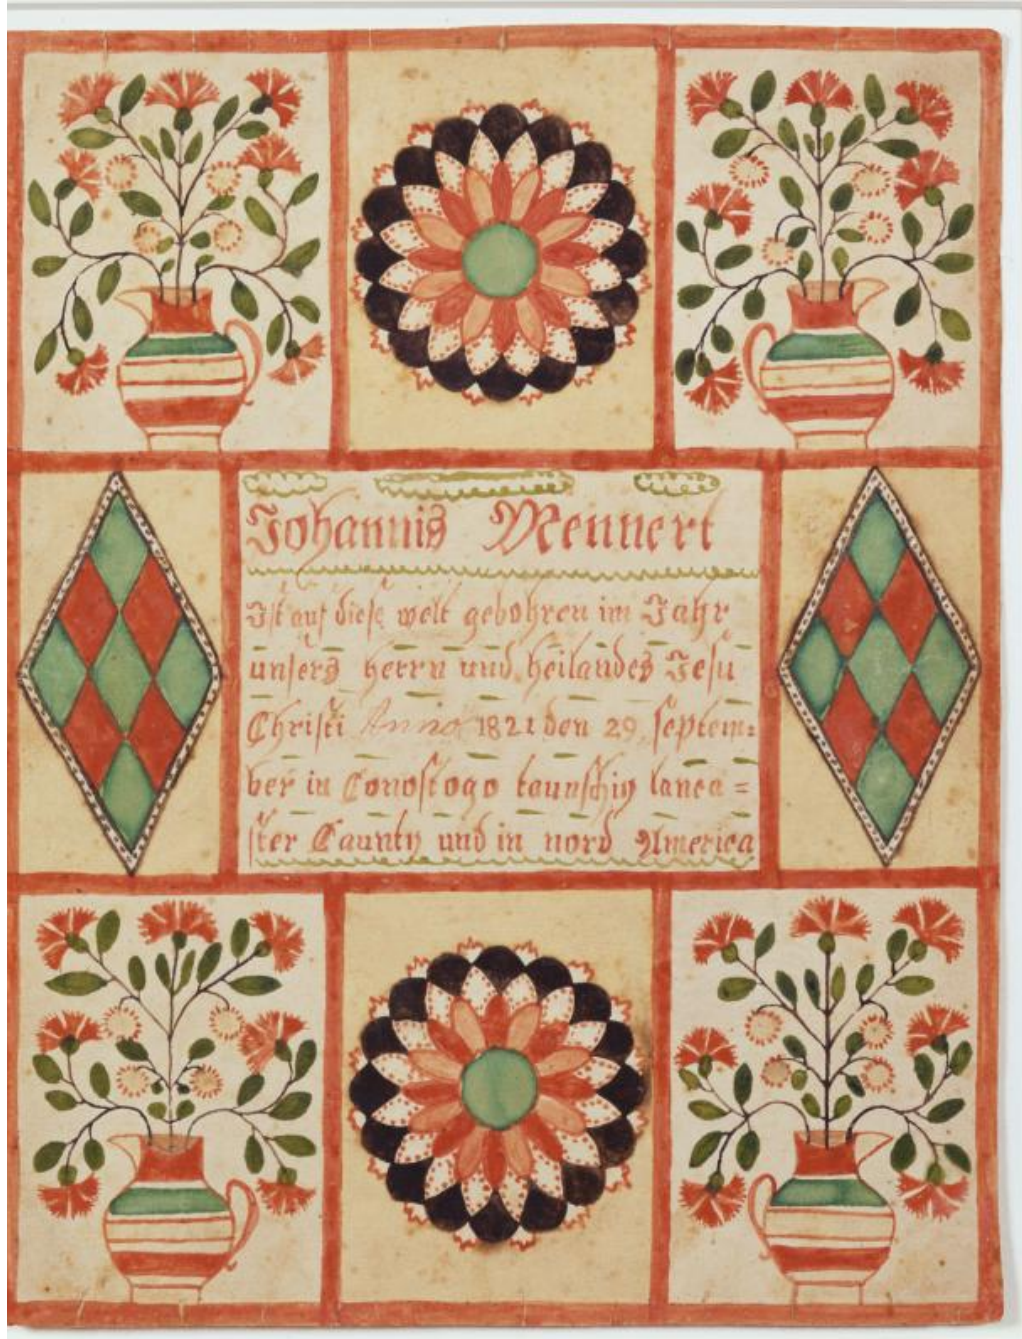 Johannis Mennert
Ist auf diese welt gebohren im Jahr
unsers herrn und heilandes Jesu
Christi Anno 1821 den 29 septem=
ber in Conostogo taunschip lanca=
ster Caunty und in nord America